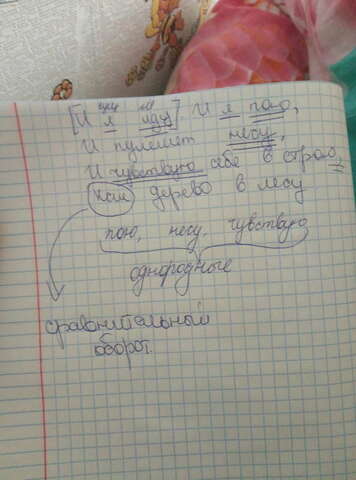 сущ мн
[И я иду]. И я пою,
И пулемет несу,
И чувствую себе в строю,
Как дерево в лесу
пою, несу, чувствую
однородные
сравнительный
оборот.